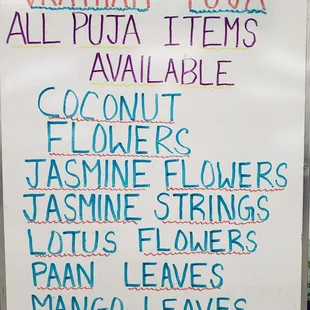 ALL PUJA ITEMS
AVAILABLE
COCONUT
FLOWERS
JASMINE FLOWERS
JASMINE STRINGS
LOTUS FLOWERS
PAAN LEAVES
MANGO LEAVES